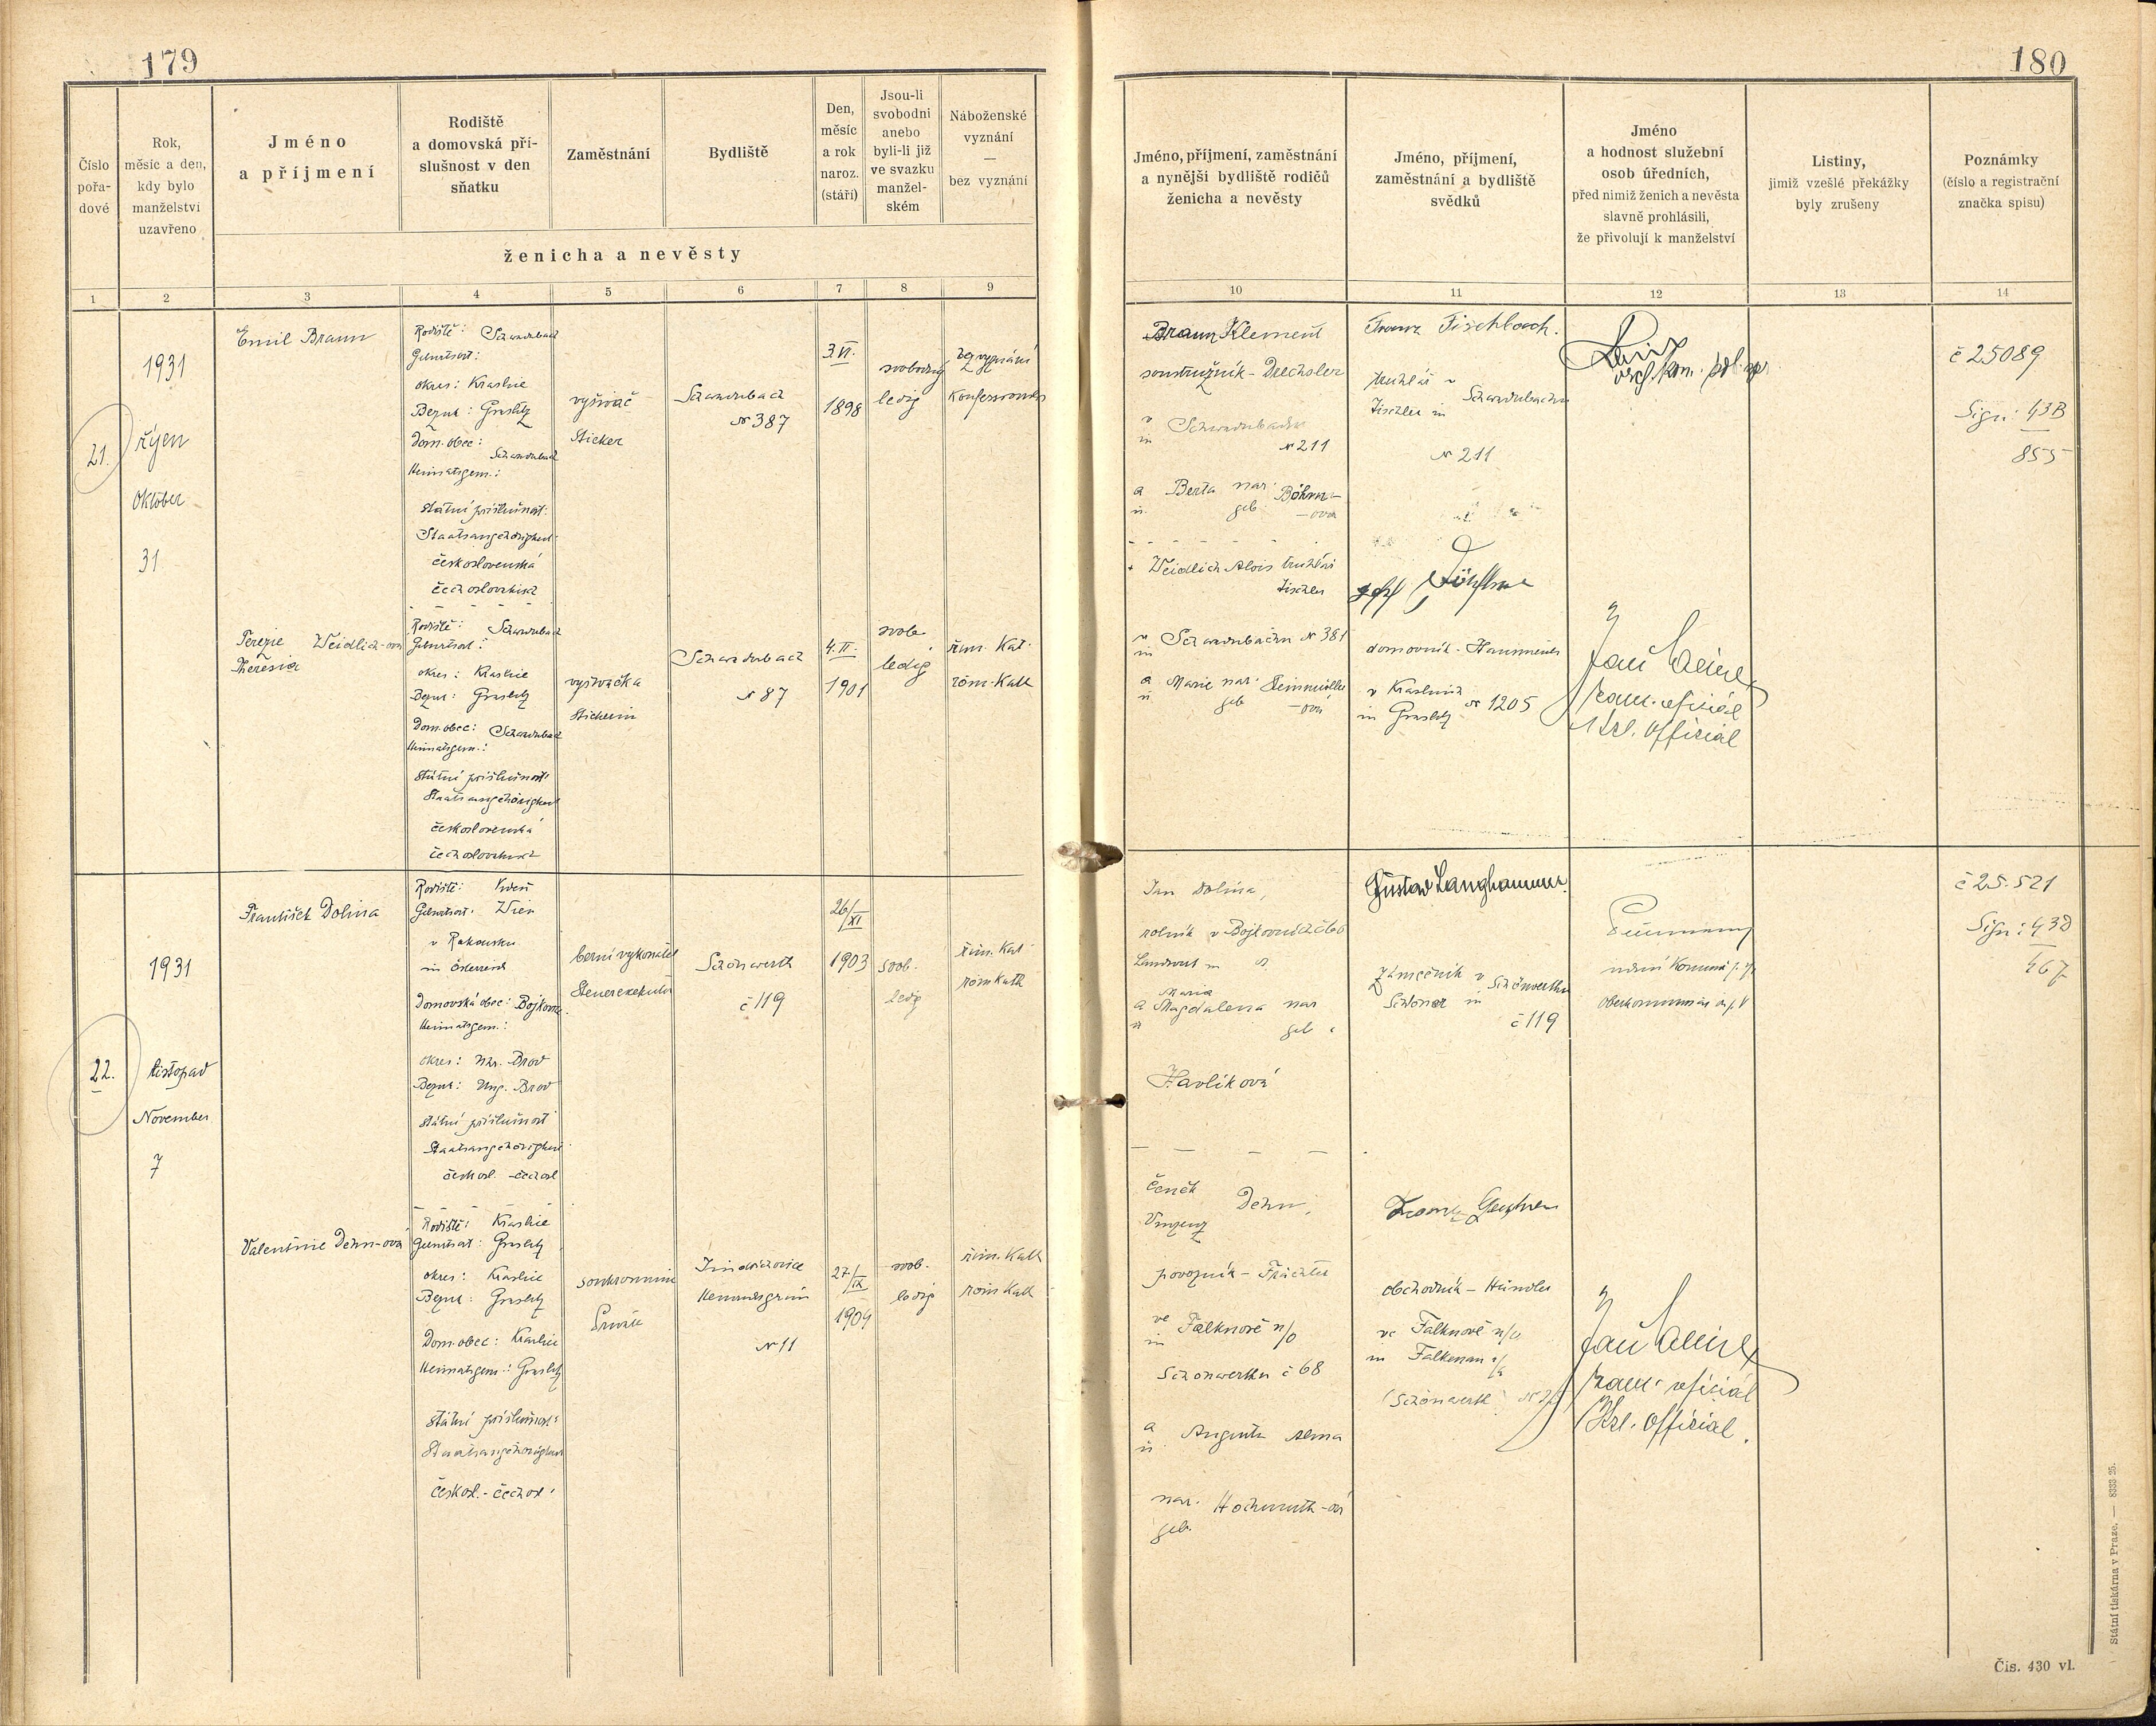 179
180
Číslo
pořa-
dové
Rok,
měsíc a den,
kdy bylo
manželství
uzavřeno
Jméno
a příjmení
Rodiště
a domovská pří-
slušnost v den
sňatku
Zaměstnání
Bydliště
Den,
měsíc
a rok
naroz.
(stáří)
Jsou-li
svobodni
anebo
byli-li již
ve svazku
manžel-
ském
Náboženské
vyznání
—
bez vyznání
ženicha a nevěsty
Jméno, příjmení, zaměstnání
a nynější bydliště rodičů
ženicha a nevěsty
Jméno, příjmení,
zaměstnání a bydliště
svědků
Jméno
a hodnost služební
osob úředních,
před nimiž ženich a nevěsta
slavně prohlásili,
že přivolují k manželství
Listiny,
jimiž vzešlé překážky
byly zrušeny
Poznámky
(číslo a registrační
značka spisu)
1 2 3 4 5 6 7 8 9 10 11 12 13 14
21.
1931
říjen
Oktober
31
Emil Braun
Rodiště: Schwaderbach
Geburtsort:
okres: Kraslice
Bezirk: Graslitz
Dom. obec: Schwaderbach
Heimatsgem.:
státní příslušnost:
Staatsangehörigkeit
československá
čechoslovakisch
vyšívač
Sticker
Schwaderbach
№ 387
3.VI.
1898
svobodný
ledig
bez vyznání
Konfessionslos
Braun Klement
soustružník - Drechsler
v
in Schwaderbachu
№ 211
a Berta nar. Böhm-
u. geb. -ová
Franz Fischbach.
truhlář v
Tischler in Schwaderbachu
№ 211
č 25089
Sign: 43B
855
Terezie Weidlich-ová
Theresia
Rodiště: Schwaderbach
Geburtsort:
okres: Kraslice
Bezirk: Graslitz
Dom. obec: Schwaderbach
Heimatsgem.:
státní příslušnost:
Staatsangehörigkeit
československá
čechoslovakisch
vyšívačka
Stickerin
Schwaderbach
№ 87
4.II.
1901
svob.
ledig
řím. kat.
röm. kath
Weidlich Alois truhlář
Tischler
v
in Schwaderbachu № 381
a Marie nar. Steinmüller
u. geb. -ová
domovník - Hausmeister
v Kraslicích
in Graslitz № 1205
kanc. oficiál
Kzl. Official
22.
1931
listopad
November
7
František Dolina
Rodiště: Vídeň
Geburtsort: Wien
v Rakousku
in Österreich
Domovská obec: Bojkovice
Heimatsgem.:
okres: Uhr. Brod
Bezirk: Ung. Brod
státní příslušnost
Staatsangehörigkeit
českosl. - čechosl
berní vykonavatel
Steuerexekutor
Schönwerth
č 119
26/XI
1903
svob.
ledig
řím. kat
röm kath
Jan Dolina,
rolník v Bojkovicích
Landwirt in
Maria
a Magdalena nar
u geb.
Havlíková
Gustav Langhammer.
zámečník v
Schlosser in Schönwerthu
č 119
č 25.521
Sign: 43B
467
Valentine Dehn-ová
Rodiště: Kraslice
Geburtsort: Graslitz
okres: Kraslice
Bezirk: Graslitz
Dom. obec: Kraslice
Heimatsgem.: Graslitz
státní příslušnost:
Staatsangehörigkeit
českosl. - čechosl.
soukromnice
Private
Jindřichovice
Heinrichsgrün
№ 11
27./IX
1904
svob.
ledig
řím. kath
röm kath
Čeněk
Vinzenz Dehn,
povozník - Frächter
ve
in Falknově n/O
Schönwerthu č 68
a
u. Augusta Alma
nar. Hochmuth-ová
geb.
obchodník - Händler
ve Falknově n/O
in Falkenau
Schönwerth
kanc. oficiál
Kzl. Official.
Státní tiskárna v Praze. — 8333 25.
Čis. 430 vl.